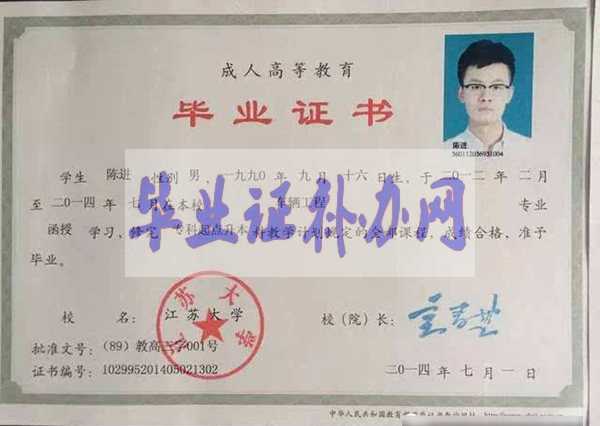 成人高等教育
毕业证书
陈进
学生 陈进 性别 男，一九九〇年 九月 十六日生，于二〇一二年 二月
至二〇一四年 七月在本校 车辆工程 专业
函授 学习，修完 专科起点升本 科教学计划规定的全部课程，成绩合格，准予
毕业。
毕业证补办网
江苏大学
校 名： 江苏大学 校（院）长：
批准文号：（89）教高三字001号
证书编号：102995201405021302 二〇一四年 七月 一日